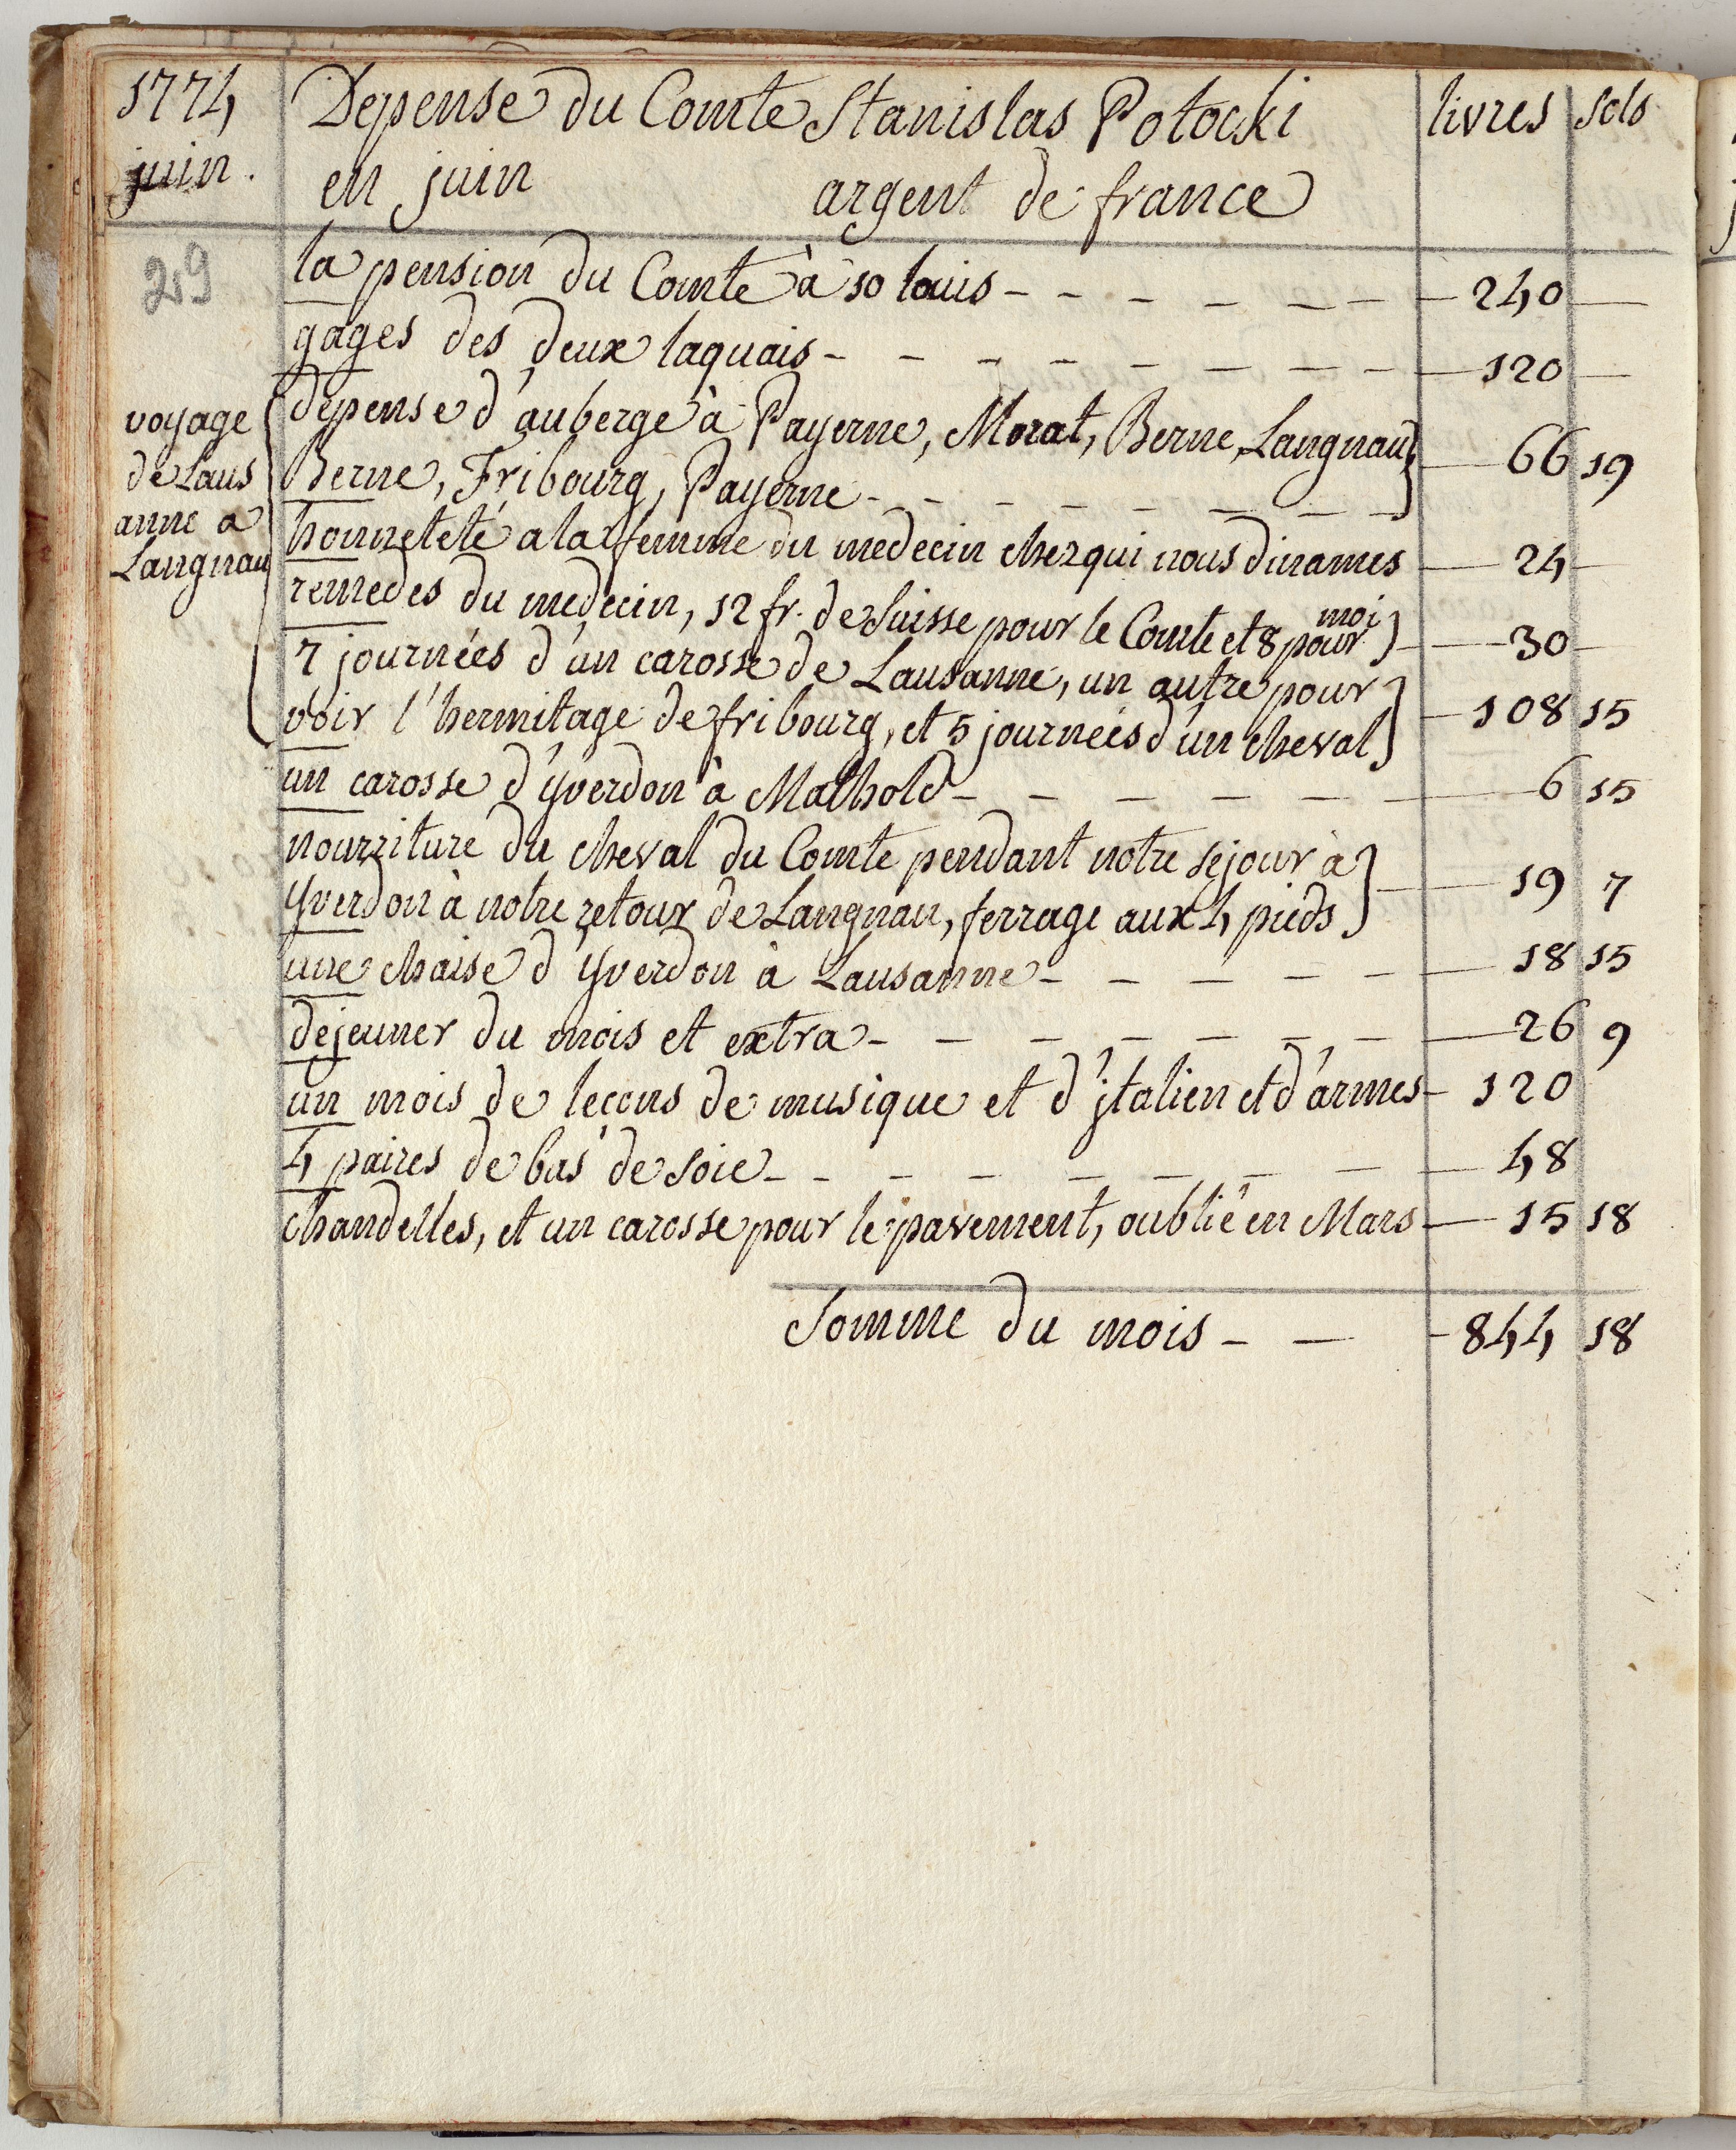 1774 Depense du Comte Stanislas Potocki livres sols
juin. en juin argent de france
29
la pension du Comte à 10 louis - - - - - - 240
gages des deux laquais - - - - - - - - 120
voyage de Laus
anne a
Langnau
depense d'auberge à Payerne, Morat, Berne, Langnau,
Berne, Fribourg, Payerne - - - - - - - 66 19
honneteté a la femme du medecin chez qui nous dinames 24
remedes du medecin, 12 fr. de Suisse pour le Comte et 8 pour moi 30
7 journées d'un carosse de Lausanne, un autre pour
voir l'hermitage de fribourg, et 5 journées d'un cheval 108 15
un carosse d'yverdon à Mathold - - - - - - 6 15
nourriture du cheval du Comte pendant notre sejour à
yverdon à notre retour de Langnau, ferrage aux 4 pieds 19 7
une chaise d'yverdon à Lausanne - - - - - 18 15
dejeuner du mois et extra - - - - - - - - 26 9
un mois de leçons de musique et d'italien et d'armes - 120
4 paires de bas de soie - - - - - - - - 48
chandelles, et un carosse pour le pavement, oublié en Mars 15 18
Somme du mois - - - 844 18